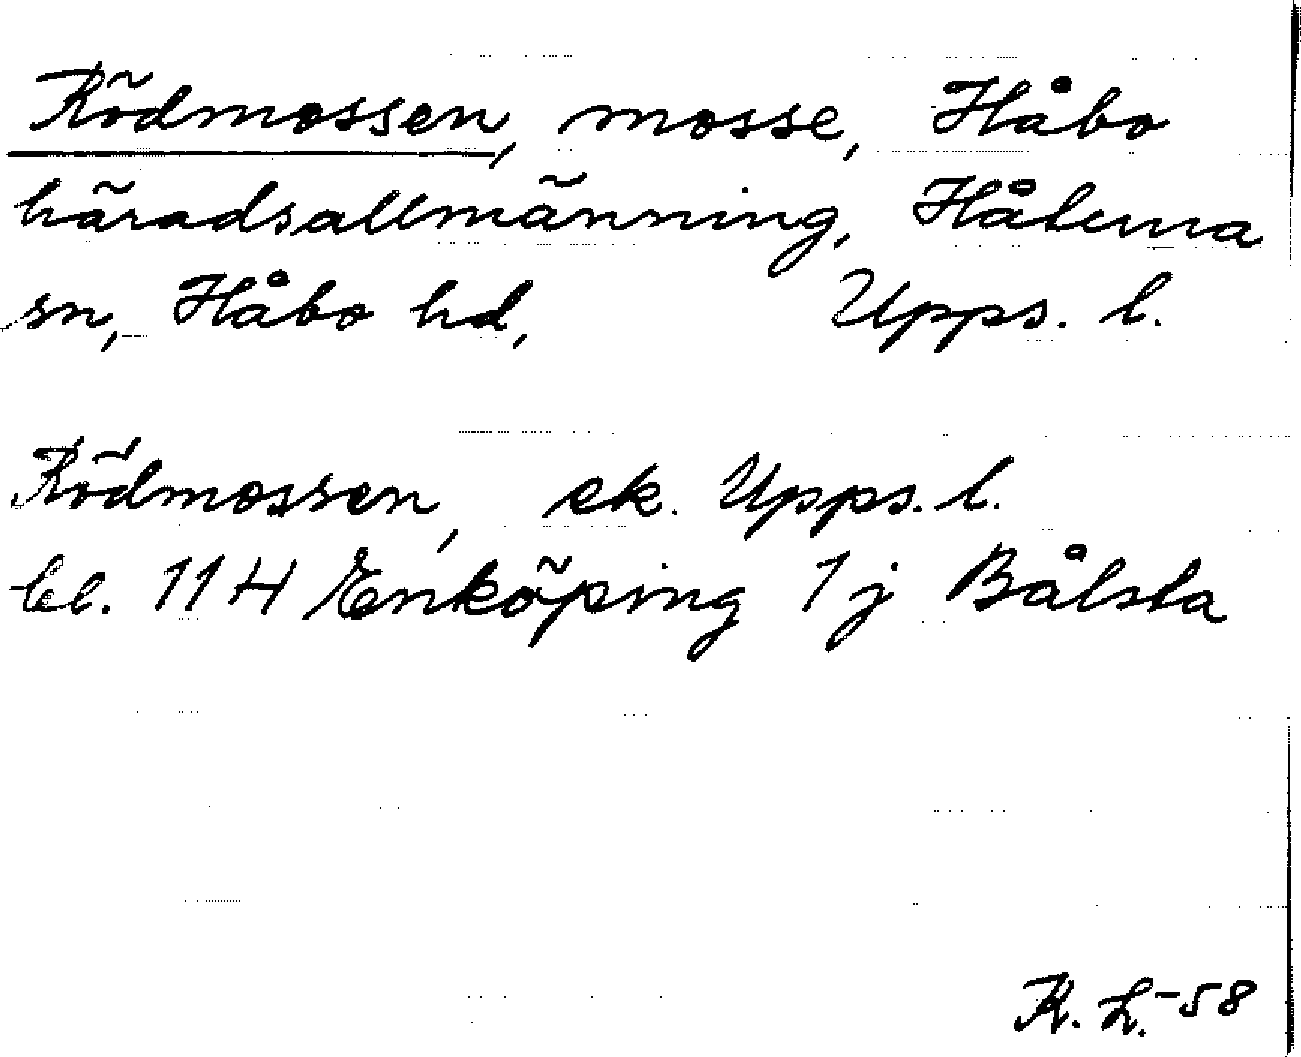 Rödmossen, mosse, Håbo
häradsallmänning, Håtuna
sn, Håbo hd, Upps. l.
Rödmossen, ek. Upps. l.
bl. 11 H Enköping 1j Bålsta
K. L. -58